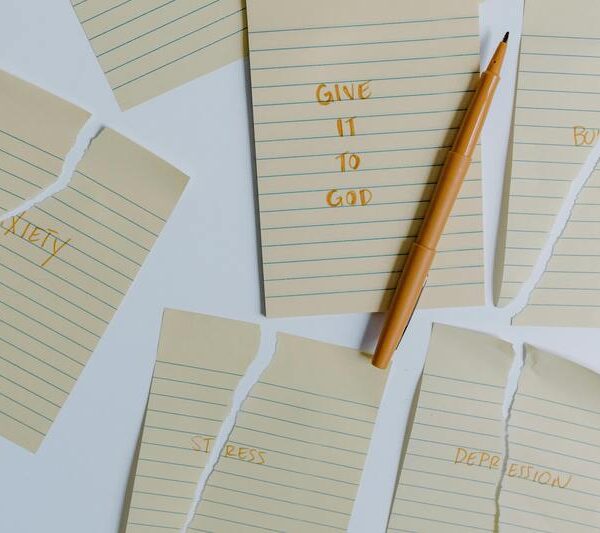 GIVE
IT
TO
GOD
BU
XIETY
STRESS
DEPRESSION